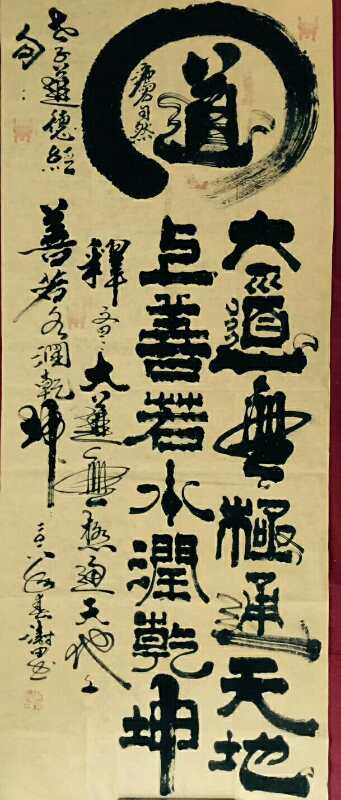 道
法自然
大道無極通天地
上善若水潤乾坤
老子道德經
句：
釋文：大道無極通天地上
善若水潤乾坤